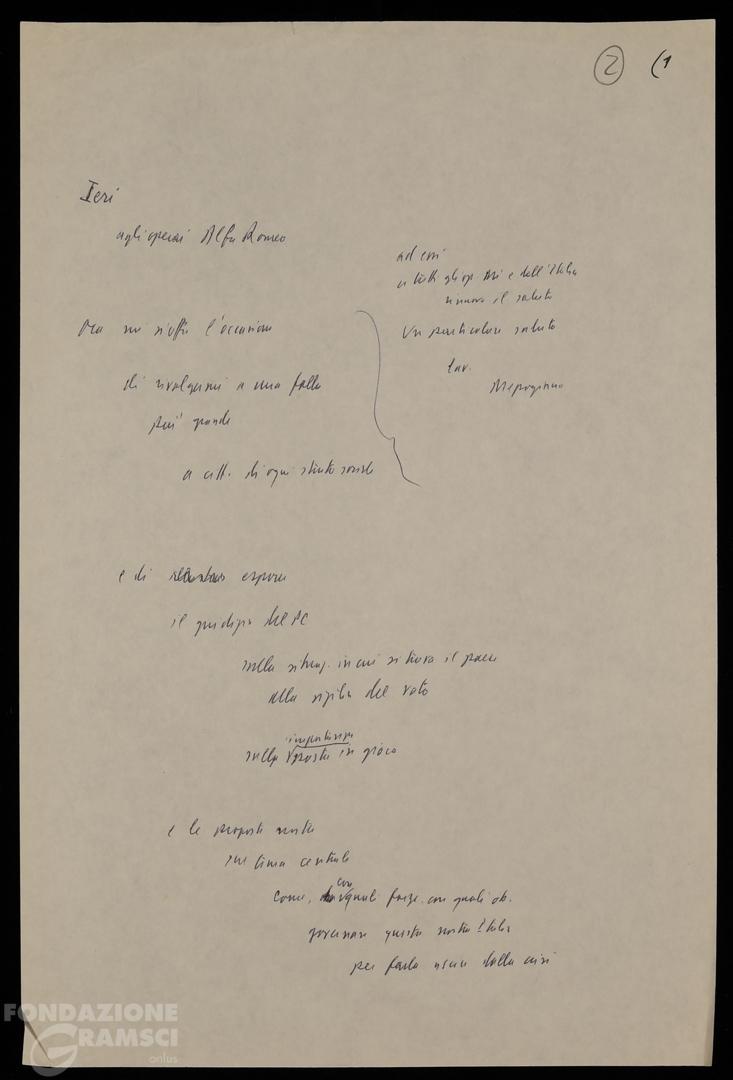 2 (1
Ieri
agli operai Alfa Romeo
ad essi
a tutti gli op. e dell'Italia
rinnovo il saluto
Un particolare saluto
Lav.
Ora mi si offre l'occasione
di rivolgermi a una folla
più grande
a citt. di ogni strato sociale
e di esporre
il giudizio del PC
sulla situaz. in cui si trova il paese
alla vigilia del voto
importanza
sulla posta in gioco
e le proposte nostre
sul tema centrale
con
come, quali forze, con quali ob.
governare questa nostra Italia
per farla uscire dalla crisi
FONDAZIONE
GRAMSCI
onlus